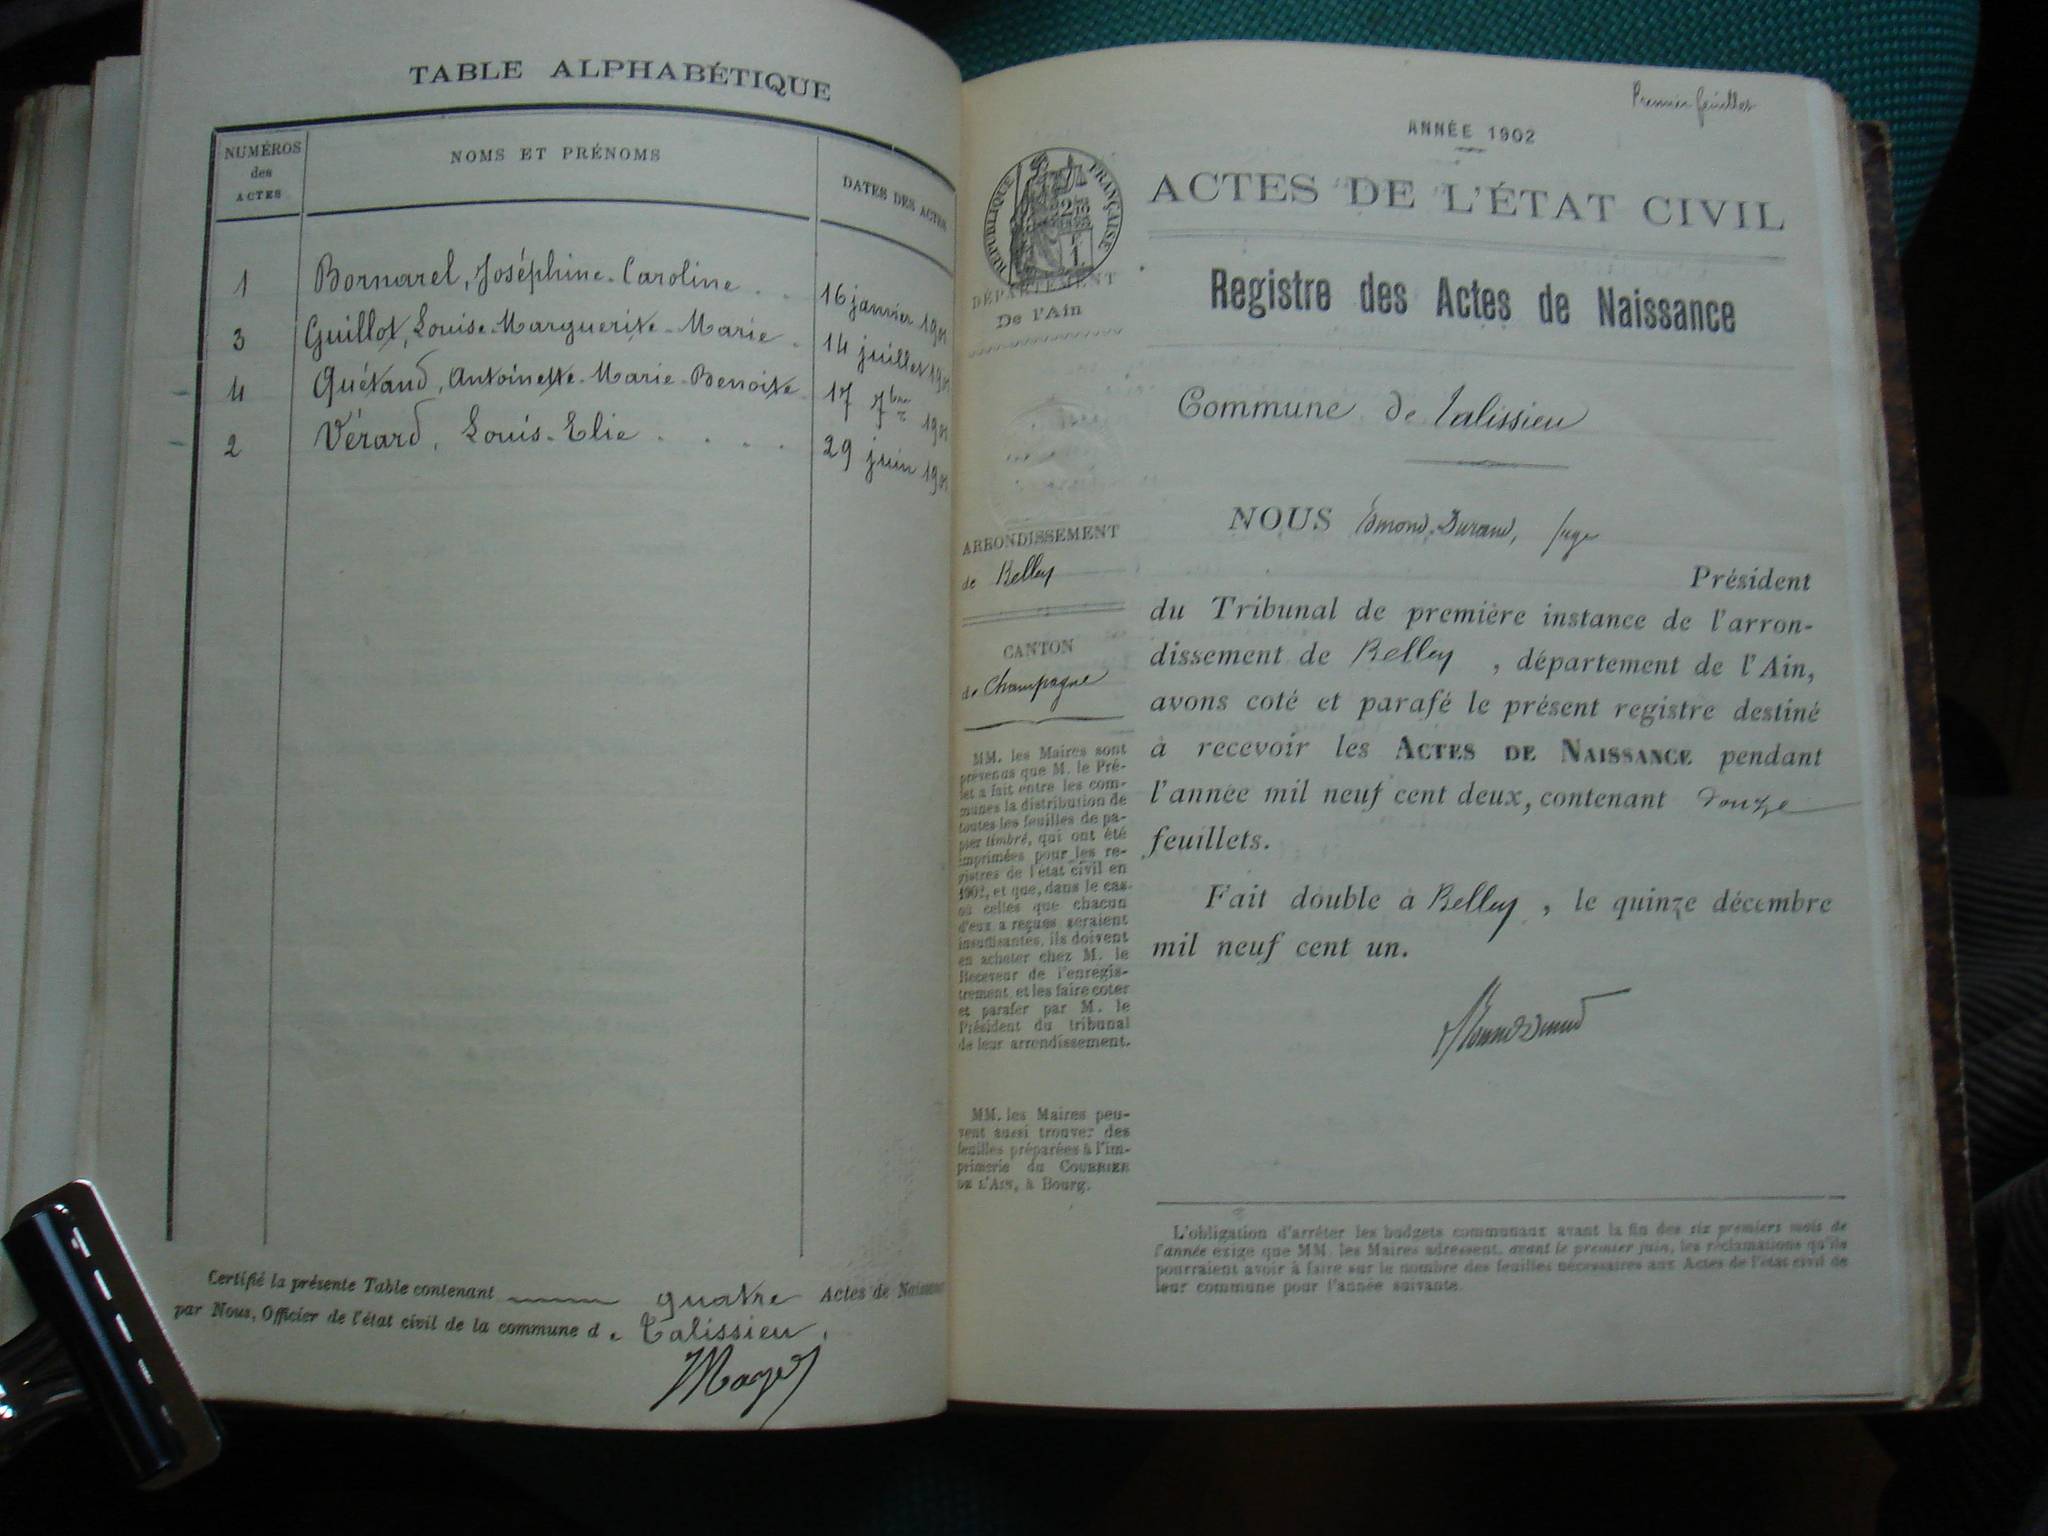 TABLE ALPHABÉTIQUE
NUMÉROS
des
ACTES
NOMS ET PRÉNOMS
DATES DES ACTES
1 Bornarel, Joséphine-Caroline . . 16 janvier 1901
3 Guillot, Louise-Marguerite-Marie . 14 juillet 1901
4 Quétand, Antoinette-Marie-Benoite 17 7bre 1901
2 Vérard, Louis-Elie . . . . 29 juin 1901
Certifié la présente Table contenant quatre Actes de Naissance
par Nous, Officier de l'état civil de la commune de Talissieu.
Premier feuillet
ANNÉE 1902
RÉPUBLIQUE FRANÇAISE
ACTES DE L'ÉTAT CIVIL
DÉPARTEMENT
De l'Ain
Registre des Actes de Naissance
Commune de Talissieu
ARRONDISSEMENT
de Belley
CANTON
de Champagne
MM. les Maires sont
prévenus que M. le Pré-
fet a fait entre les com-
munes la distribution de
toutes les feuilles de pa-
pier timbré, qui ont été
imprimées pour les re-
gistres de l'état civil en
1902, et que, dans le cas
où celles que chacun
d'eux a reçues seraient
insuffisantes, ils doivent
en acheter chez M. le
Receveur de l'enregis-
trement et les faire coter
et parafer par M. le
Président du tribunal
de leur arrondissement.
MM. les Maires peu-
vent aussi trouver des
feuilles préparées à l'im-
primerie du COURRIER
DE L'AIN, à Bourg.
NOUS Edmond Durand, juge
Président
du Tribunal de première instance de l'arron-
dissement de Belley, département de l'Ain,
avons coté et parafé le présent registre destiné
à recevoir les ACTES DE NAISSANCE pendant
l'année mil neuf cent deux, contenant douze
feuillets.
Fait double à Belley, le quinze décembre
mil neuf cent un.
L'obligation d'arrêter les budgets communaux avant la fin des six premiers mois de
l'année exige que MM. les Maires adressent, avant le premier juin, les réclamations qu'ils
pourraient avoir à faire sur le nombre des feuilles nécessaires aux Actes de l'état civil de
leur commune pour l'année suivante.